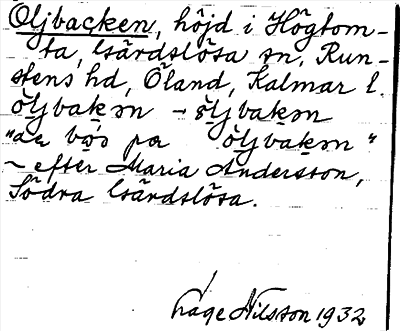 Öljbacken, höjd i Högtom-
ta, Gärdslösa sn, Run-
stens hd, Öland, Kalmar l.
öljbakɔn – öljbakɔn
"da pa öljbakɔn"
~ efter Maria Andersson,
Södra Gärdslösa.
Nilsson 1932